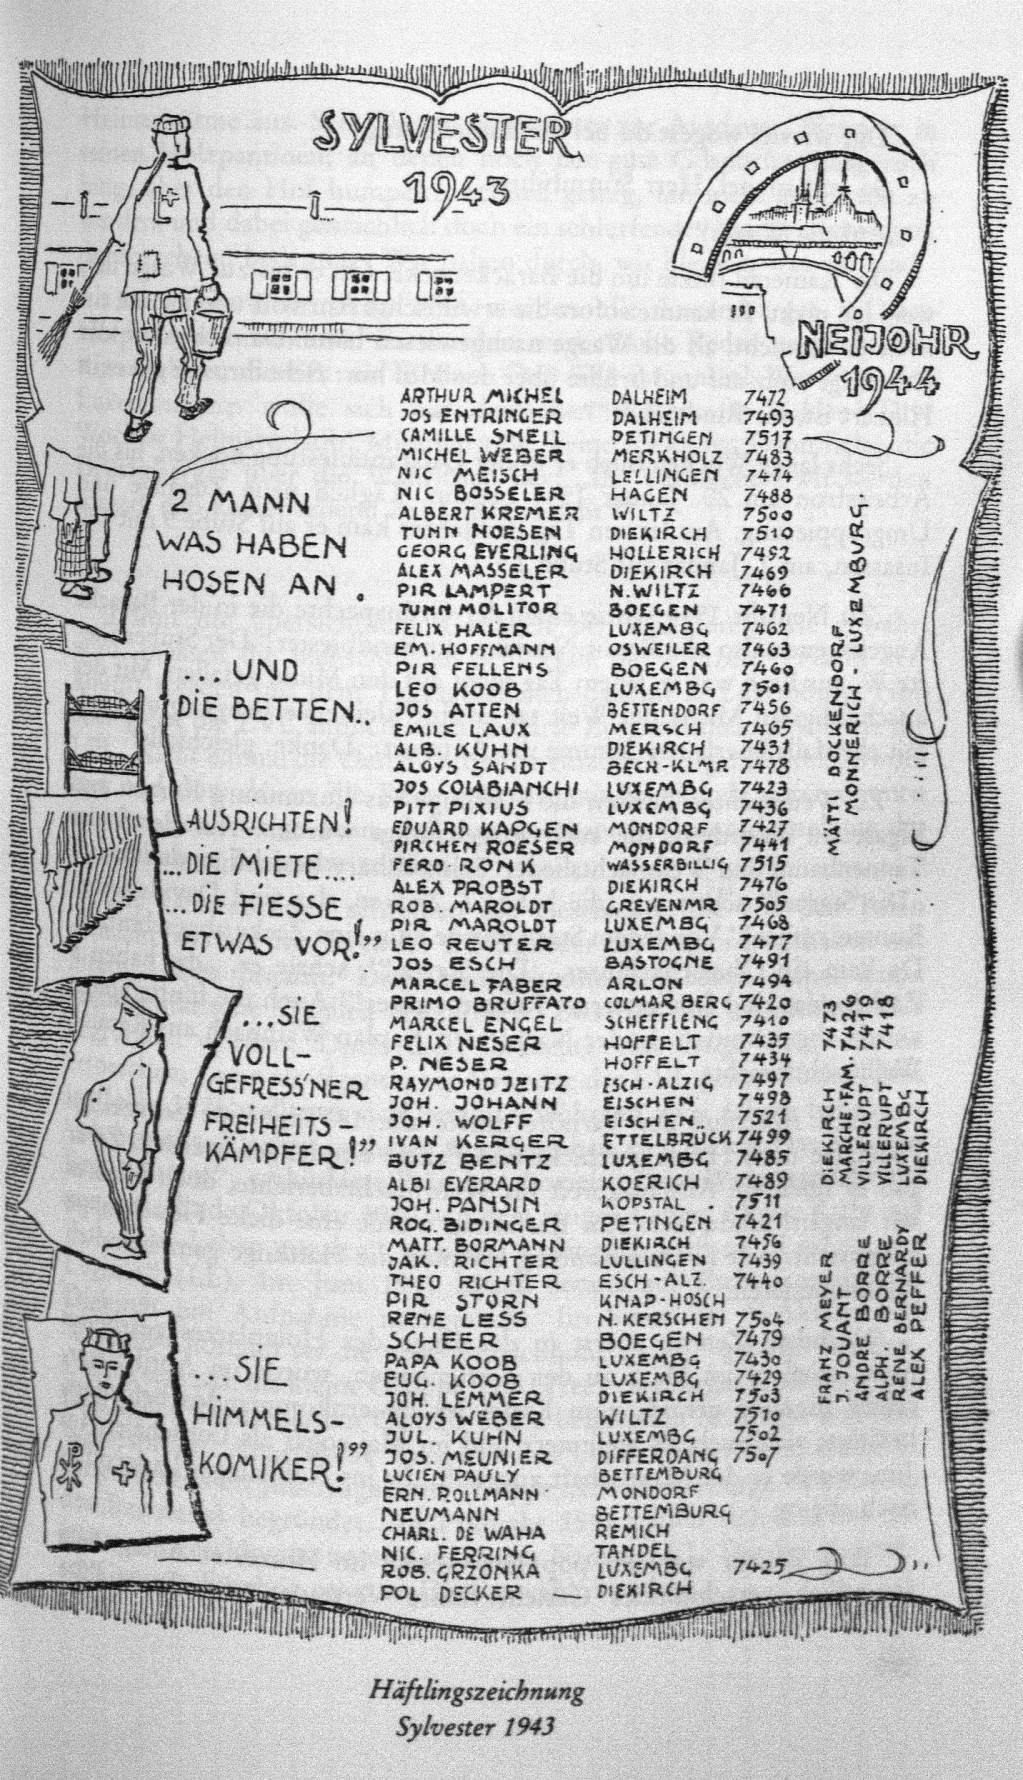 SYLVESTER
1943
NEIJOHR
1944
2 MANN
WAS HABEN
HOSEN AN.
...UND
DIE BETTEN..
AUSRICHTEN!
...DIE MIETE...
...DIE FIESSE
ETWAS VOR!"
...SIE
VOLL-
GEFRESS'NER
FREIHEITS-
KÄMPFER!"
...SIE
HIMMELS-
KOMIKER!"
ARTHUR MICHEL DALHEIM 7472
JOS ENTRINGER DALHEIM 7493
CAMILLE SNELL PETINGEN 7517
MICHEL WEBER MERKHOLZ 7483
NIC MEISCH LELLINGEN 7474
NIC BOSSELER HAGEN 7488
ALBERT KREMER WILTZ 7500
TUNN NOESEN DIEKIRCH 7512
GEORG EVERLING HOLLERICH 7492
ALEX MASSELER DIEKIRCH 7469
PIR LAMPERT N.WILTZ 7466
TUNN MOLITOR BOEGEN 7471
FELIX HALER LUXEMBG 7462
EM. HOFFMANN OSWEILER 7463
PIR FELLENS BOEGEN 7460
LEO KOOB LUXEMBG 7501
JOS ATTEN BETTENDORF 7456
EMILE LAUX MERSCH 7465
ALB. KUHN DIEKIRCH 7431
ALOYS SANDT BECH-KLMR 7478
JOS COLABIANCHI LUXEMBG 7423
PITT PIXIUS LUXEMBG 7436
EDUARD KAPGEN MONDORF 7427
PIRCHEN ROESER MONDORF 7441
FERD RONK WASSERBILLIG 7515
ALEX PROBST DIEKIRCH 7476
ROB. MAROLDT GREVENMR 7505
PIR MAROLDT LUXEMBG 7468
LEO REUTER LUXEMBG 7477
JOS ESCH BASTOGNE 7491
MARCEL FABER ARLON 7494
PRIMO BRUFFATO COLMAR BERG 7420
MARCEL ENGEL SCHEFFLENG 7410
FELIX NESER HOFFELT 7435
P. NESER HOFFELT 7434
RAYMOND ZEITZ ESCH-ALZIG 7497
JOH. JOHANN EISCHEN 7498
JOH. WOLFF EISCHEN.. 7521
IVAN KERGER ETTELBRÜCK 7499
BUTZ BENTZ LUXEMBG 7485
ALBI EVERARD KOERICH 7489
JOH. PANSIN KOPSTAL . 7511
ROG. BIDINGER PETINGEN 7421
MATT. BORMANN DIEKIRCH 7456
JAK. RICHTER LULLINGEN 7439
THEO RICHTER ESCH-ALZ. 7440
PIR STORN KNAP-HOSCH
RENE LESS N. KERSCHEN 7504
SCHEER BOEGEN 7479
PAPA KOOB LUXEMBG 7430
EUG. KOOB LUXEMBG 7429
JOH. LEMMER DIEKIRCH 7503
ALOYS WEBER WILTZ 7510
JUL. KUHN LUXEMBG 7502
JOS. MEUNIER DIFFERDANG 7507
LUCIEN PAULY BETTEMBURG
ERN. ROLLMANN MONDORF
NEUMANN BETTEMBURG
CHARL. DE WAHA REMICH
NIC. FERRING TANDEL
ROB. GRZONKA LUXEMBG 7425
POL DECKER DIEKIRCH
MÄTTI DOCKENDORF
MONNERICH LUXEMBURG.
FRANZ MEYER DIEKIRCH 7473
J. JOUANT MARCHE-FAM. 7426
ANDRE BORRE VILLERUPT 7419
ALPH. BORRE VILLERUPT 7418
RENE BERNARDY LUXEMBG
ALEX PEFFER DIEKIRCH
Häftlingszeichnung
Sylvester 1943